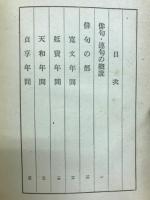 目次
俳句・連句の概説
俳句の部
寛文年間
延寶年間
天和年間
貞享年間